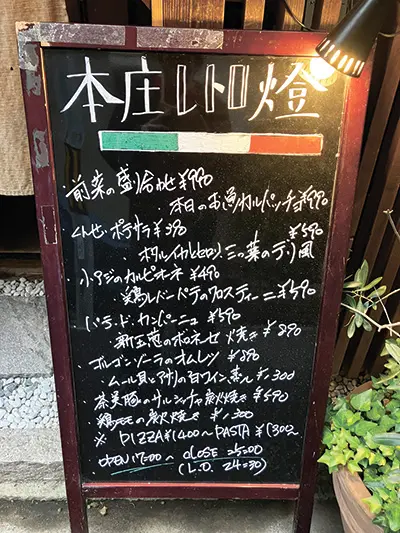 本庄レトロ燈
前菜の盛り合わせ ¥990
本日のお魚カルパッチョ ¥990
くんせいポテサラ ¥390
¥590
ホタルイカとセロリ、三つ葉のデリ風
小アジのカルピオーネ ¥490
鶏レバーパテのクロスティーニ ¥590
パテ・ド・カンパーニュ ¥590
新玉葱のボロネーゼ焼き ¥890
ゴルゴンゾーラのオムレツ ¥890
ムール貝とアサリの白ワイン蒸し ¥1,300
茶美豚のサルシッチャ炭火焼き ¥890
の炭火焼き ¥1,300
※ PIZZA ¥1400～ PASTA ¥1300～
OPEN 17:00 ～ CLOSE 25:00
(L.O. 24:30)